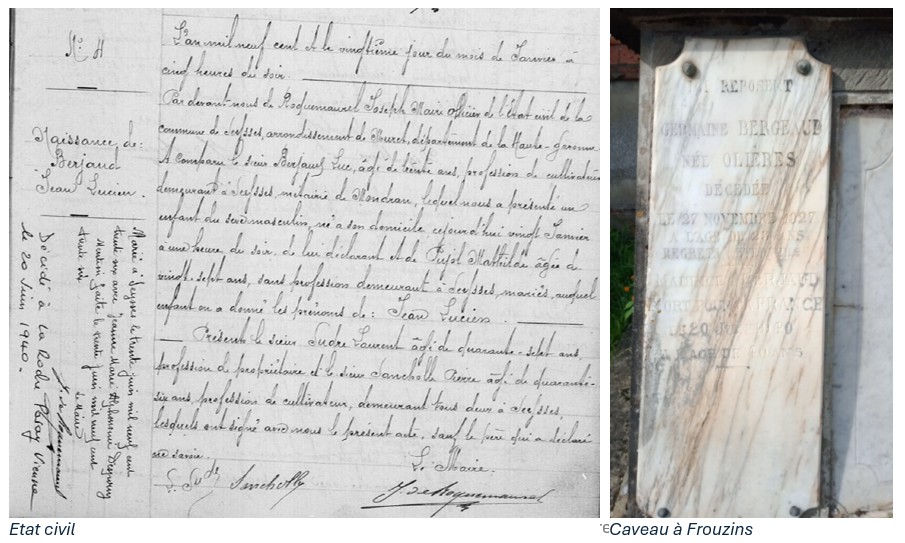 N° 4
Naissance de:
Berjaud
Jean Lucien.
Marié à Seysses le trente juin mil neuf cent
trente six avec Jeanne Marie Alphonsine
trente six.
Le Maire
J. de Roquemaurel
Décédé à La Roche Posay Vienne
le 20 Juin 1940.
L'an mil neuf cent et le vingtième jour du mois de Janvier à
cinq heures du soir.
Par devant nous de Roquemaurel Joseph Maire officier de l'état civil de la
commune de Seysses, arrondissement de Muret, département de la Haute-Garonne
A comparu le sieur Berjaud Luc, âgé de trente ans, profession de cultivateur
demeurant à Seysses, métairie de Mondran, lequel nous a présenté un
enfant du sexe masculin, né à son domicile cejourd'hui vingt Janvier
à une heure du soir, de lui déclarant et de Pujol Mathilde âgée de
vingt-sept ans, sans profession demeurant à Seysses, mariés, auquel
enfant on a donné les prénoms de: Jean Lucien.
Présents le sieur Sudre Laurent âgé de quarante-sept ans,
profession de propriétaire et le sieur Sancholle Pierre âgé de quarante-
six ans, profession de cultivateur, demeurant tous deux à Seysses,
lesquels ont signé avec nous le présent acte, sauf le père qui a déclaré
ne savoir.
Le Maire.
L. Sudre Sancholle
J. de Roquemaurel
ICI REPOSENT
GERMAINE BERGEAUD
NÉE OLIÈRES
DÉCÉDÉE
LE 27 NOVEMBRE 1927
A L'AGE DE ANS
REGRETS
MORT POUR LA FRANCE
A L'AGE DE ANS
Etat civil
Caveau à Frouzins